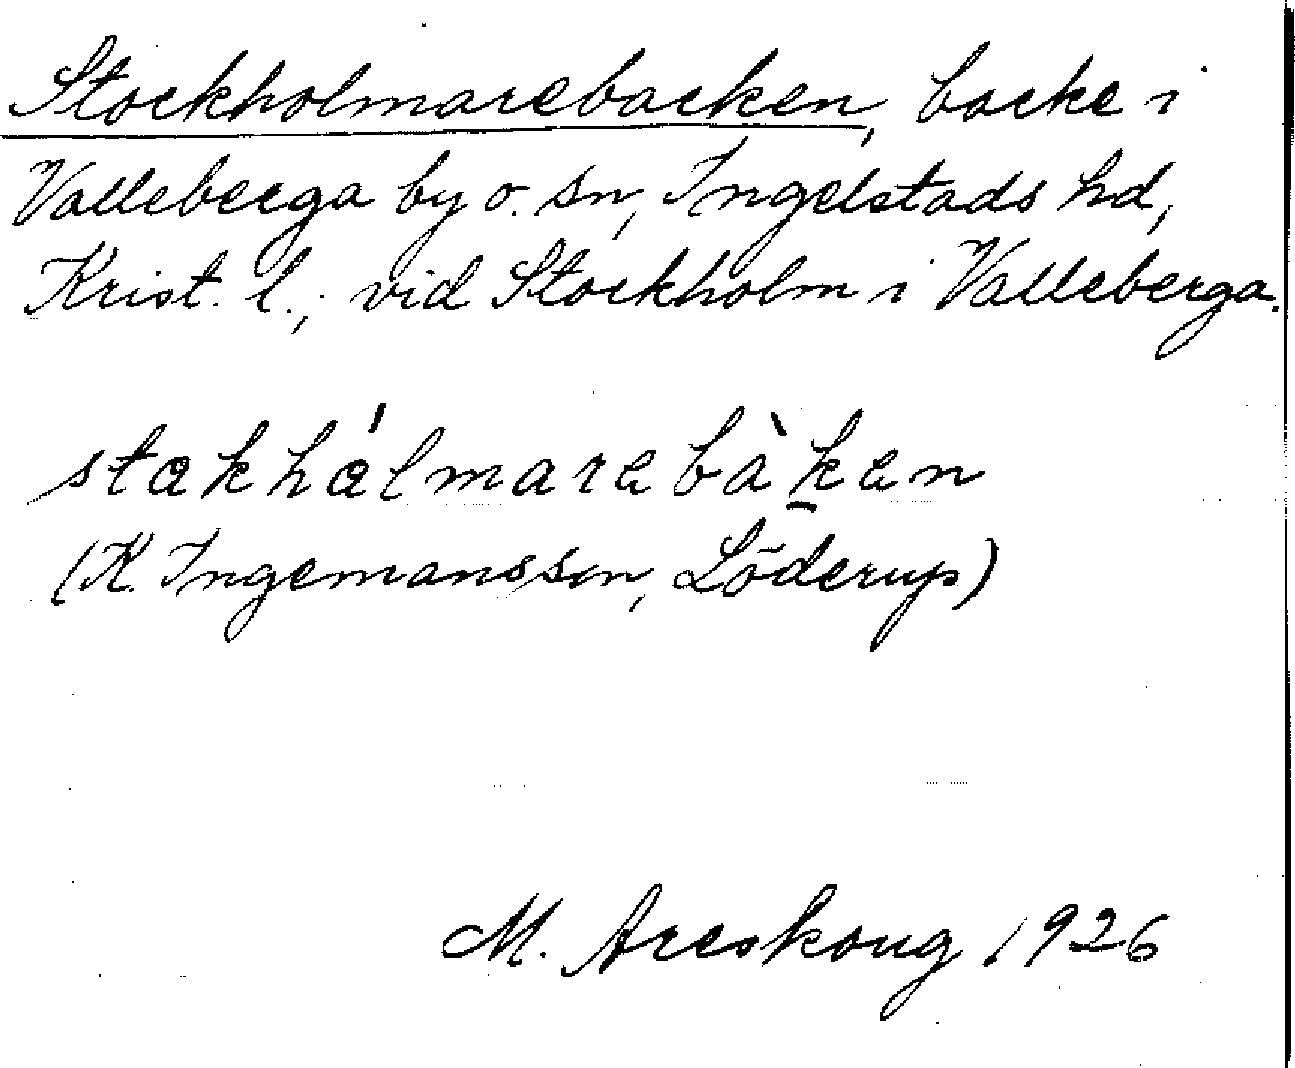 Stockholmarebacken, backe i
Valleberga by o. sn, Ingelstads hd,
Krist. l.; vid Stockholm i Valleberga.
stakhálmarebàken
(K. Ingemansson, Löderup)
M. Areskoug 1926